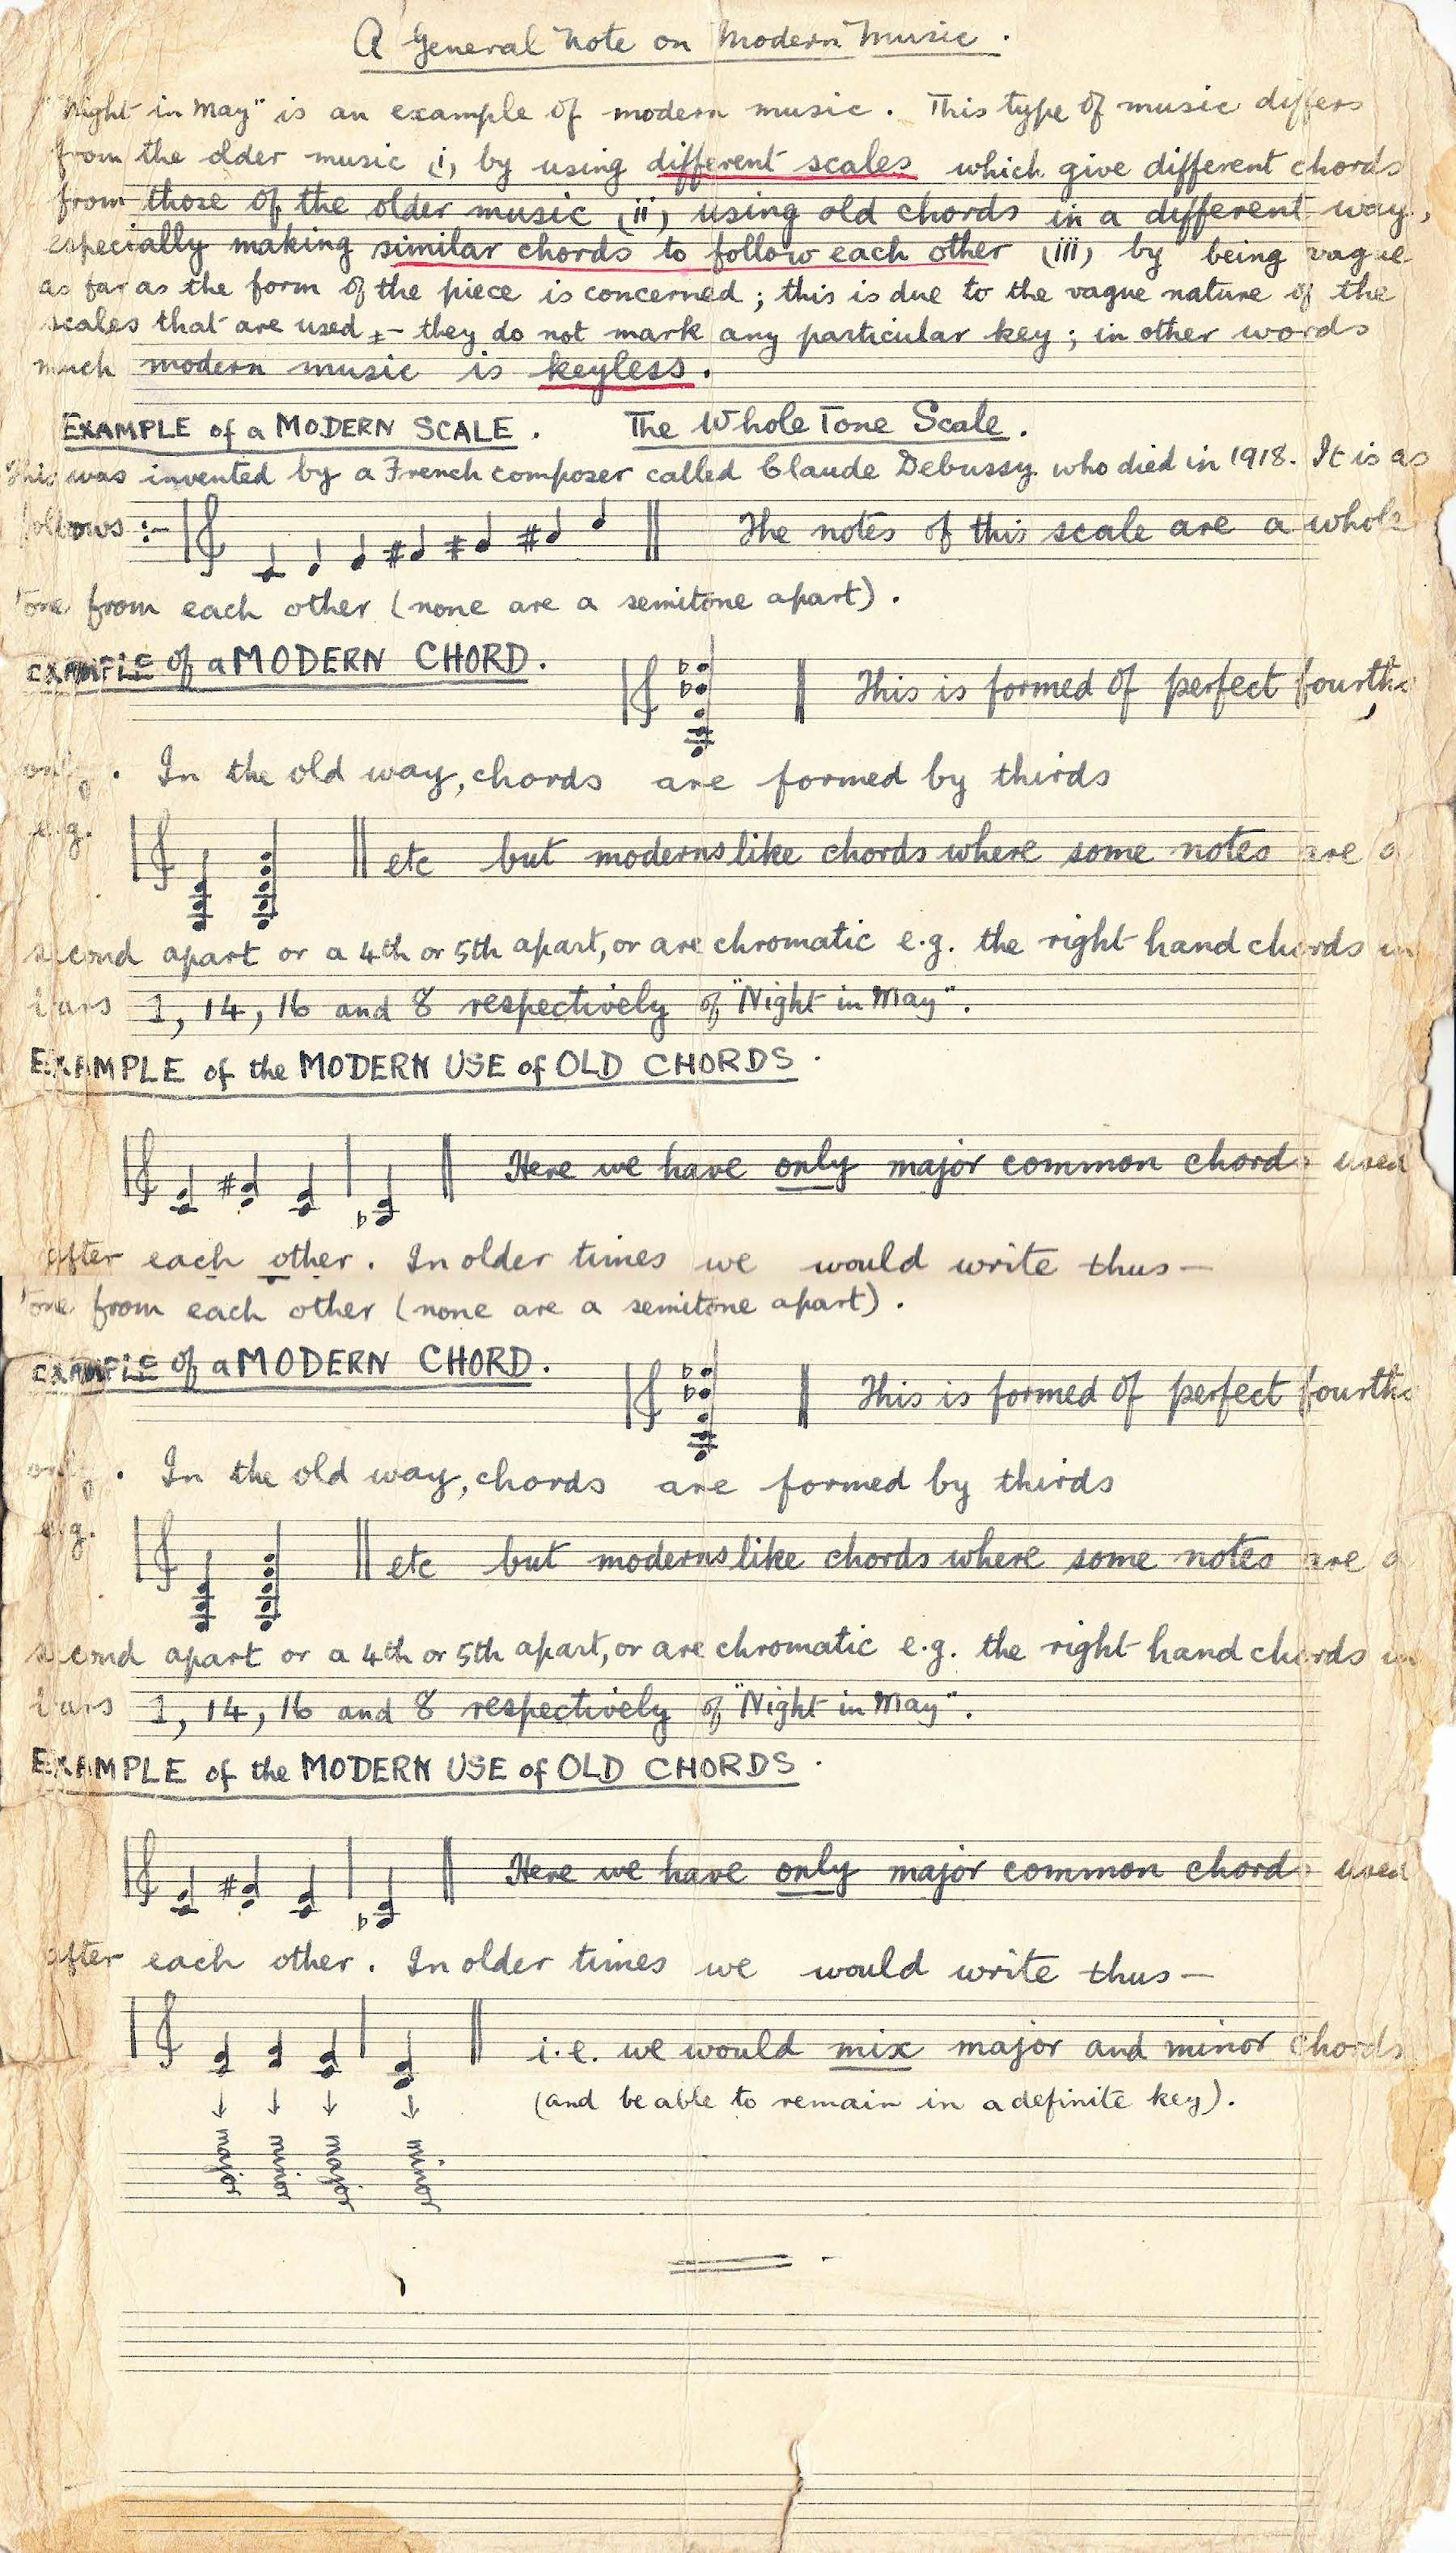 A General Note on Modern Music.
"Night in May" is an example of modern music. This type of music differs
from the older music (i) by using different scales which give different chords
from those of the older music (ii) using old chords in a different way,
especially making similar chords to follow each other (iii) by being vague
as far as the form of the piece is concerned; this is due to the vague nature of the
scales that are used – they do not mark any particular key; in other words
much modern music is keyless.
EXAMPLE of a MODERN SCALE. The Whole Tone Scale.
This was invented by a French composer called Claude Debussy who died in 1918. It is as
follows :- The notes of this scale are a whole
tone from each other (none are a semitone apart).
EXAMPLE of a MODERN CHORD. This is formed of perfect fourths
only. In the old way, chords are formed by thirds
e.g. etc but moderns like chords where some notes are a
second apart or a 4th or 5th apart, or are chromatic e.g. the right hand chords in
bars 1, 14, 16 and 8 respectively of "Night in May".
EXAMPLE of the MODERN USE of OLD CHORDS.
Here we have only major common chords used
after each other. In older times we would write thus—
tone from each other (none are a semitone apart).
EXAMPLE of a MODERN CHORD. This is formed of perfect fourths
only. In the old way, chords are formed by thirds
e.g. etc but moderns like chords where some notes are a
second apart or a 4th or 5th apart, or are chromatic e.g. the right hand chords in
bars 1, 14, 16 and 8 respectively of "Night in May".
EXAMPLE of the MODERN USE of OLD CHORDS.
Here we have only major common chords used
after each other. In older times we would write thus—
i.e. we would mix major and minor chords
(and be able to remain in a definite key).
major minor major minor